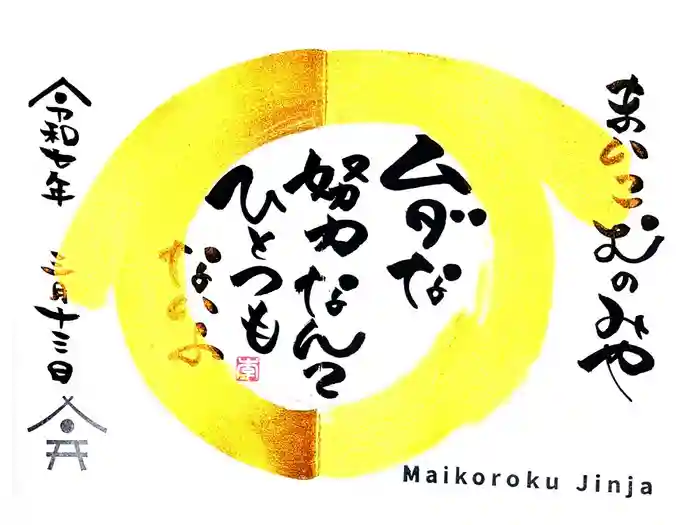 まいころむのみや
ムダな
努力なんて
ひとつも
ないよ
令和七年 三月十三日
Maikoroku Jinja